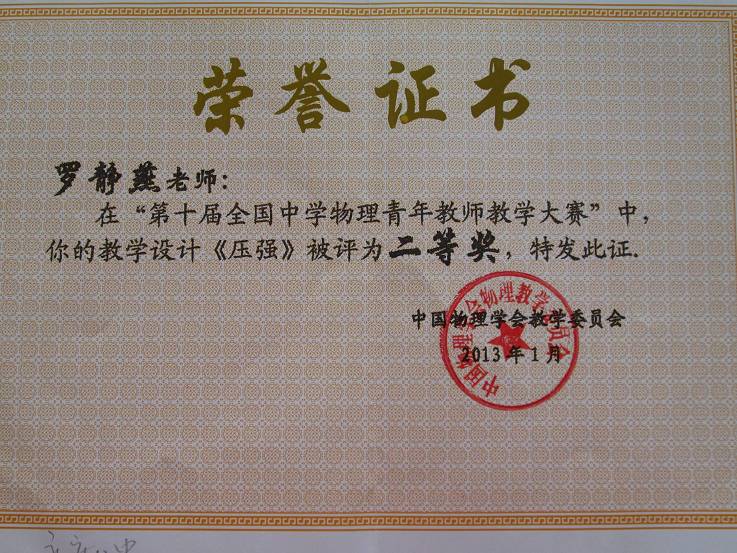 荣誉证书
罗静燕老师：
在“第十届全国中学物理青年教师教学大赛”中，
你的教学设计《压强》被评为二等奖，特发此证.
中国物理学会教学委员会
2013年1月
中国物理学会物理教学委员会